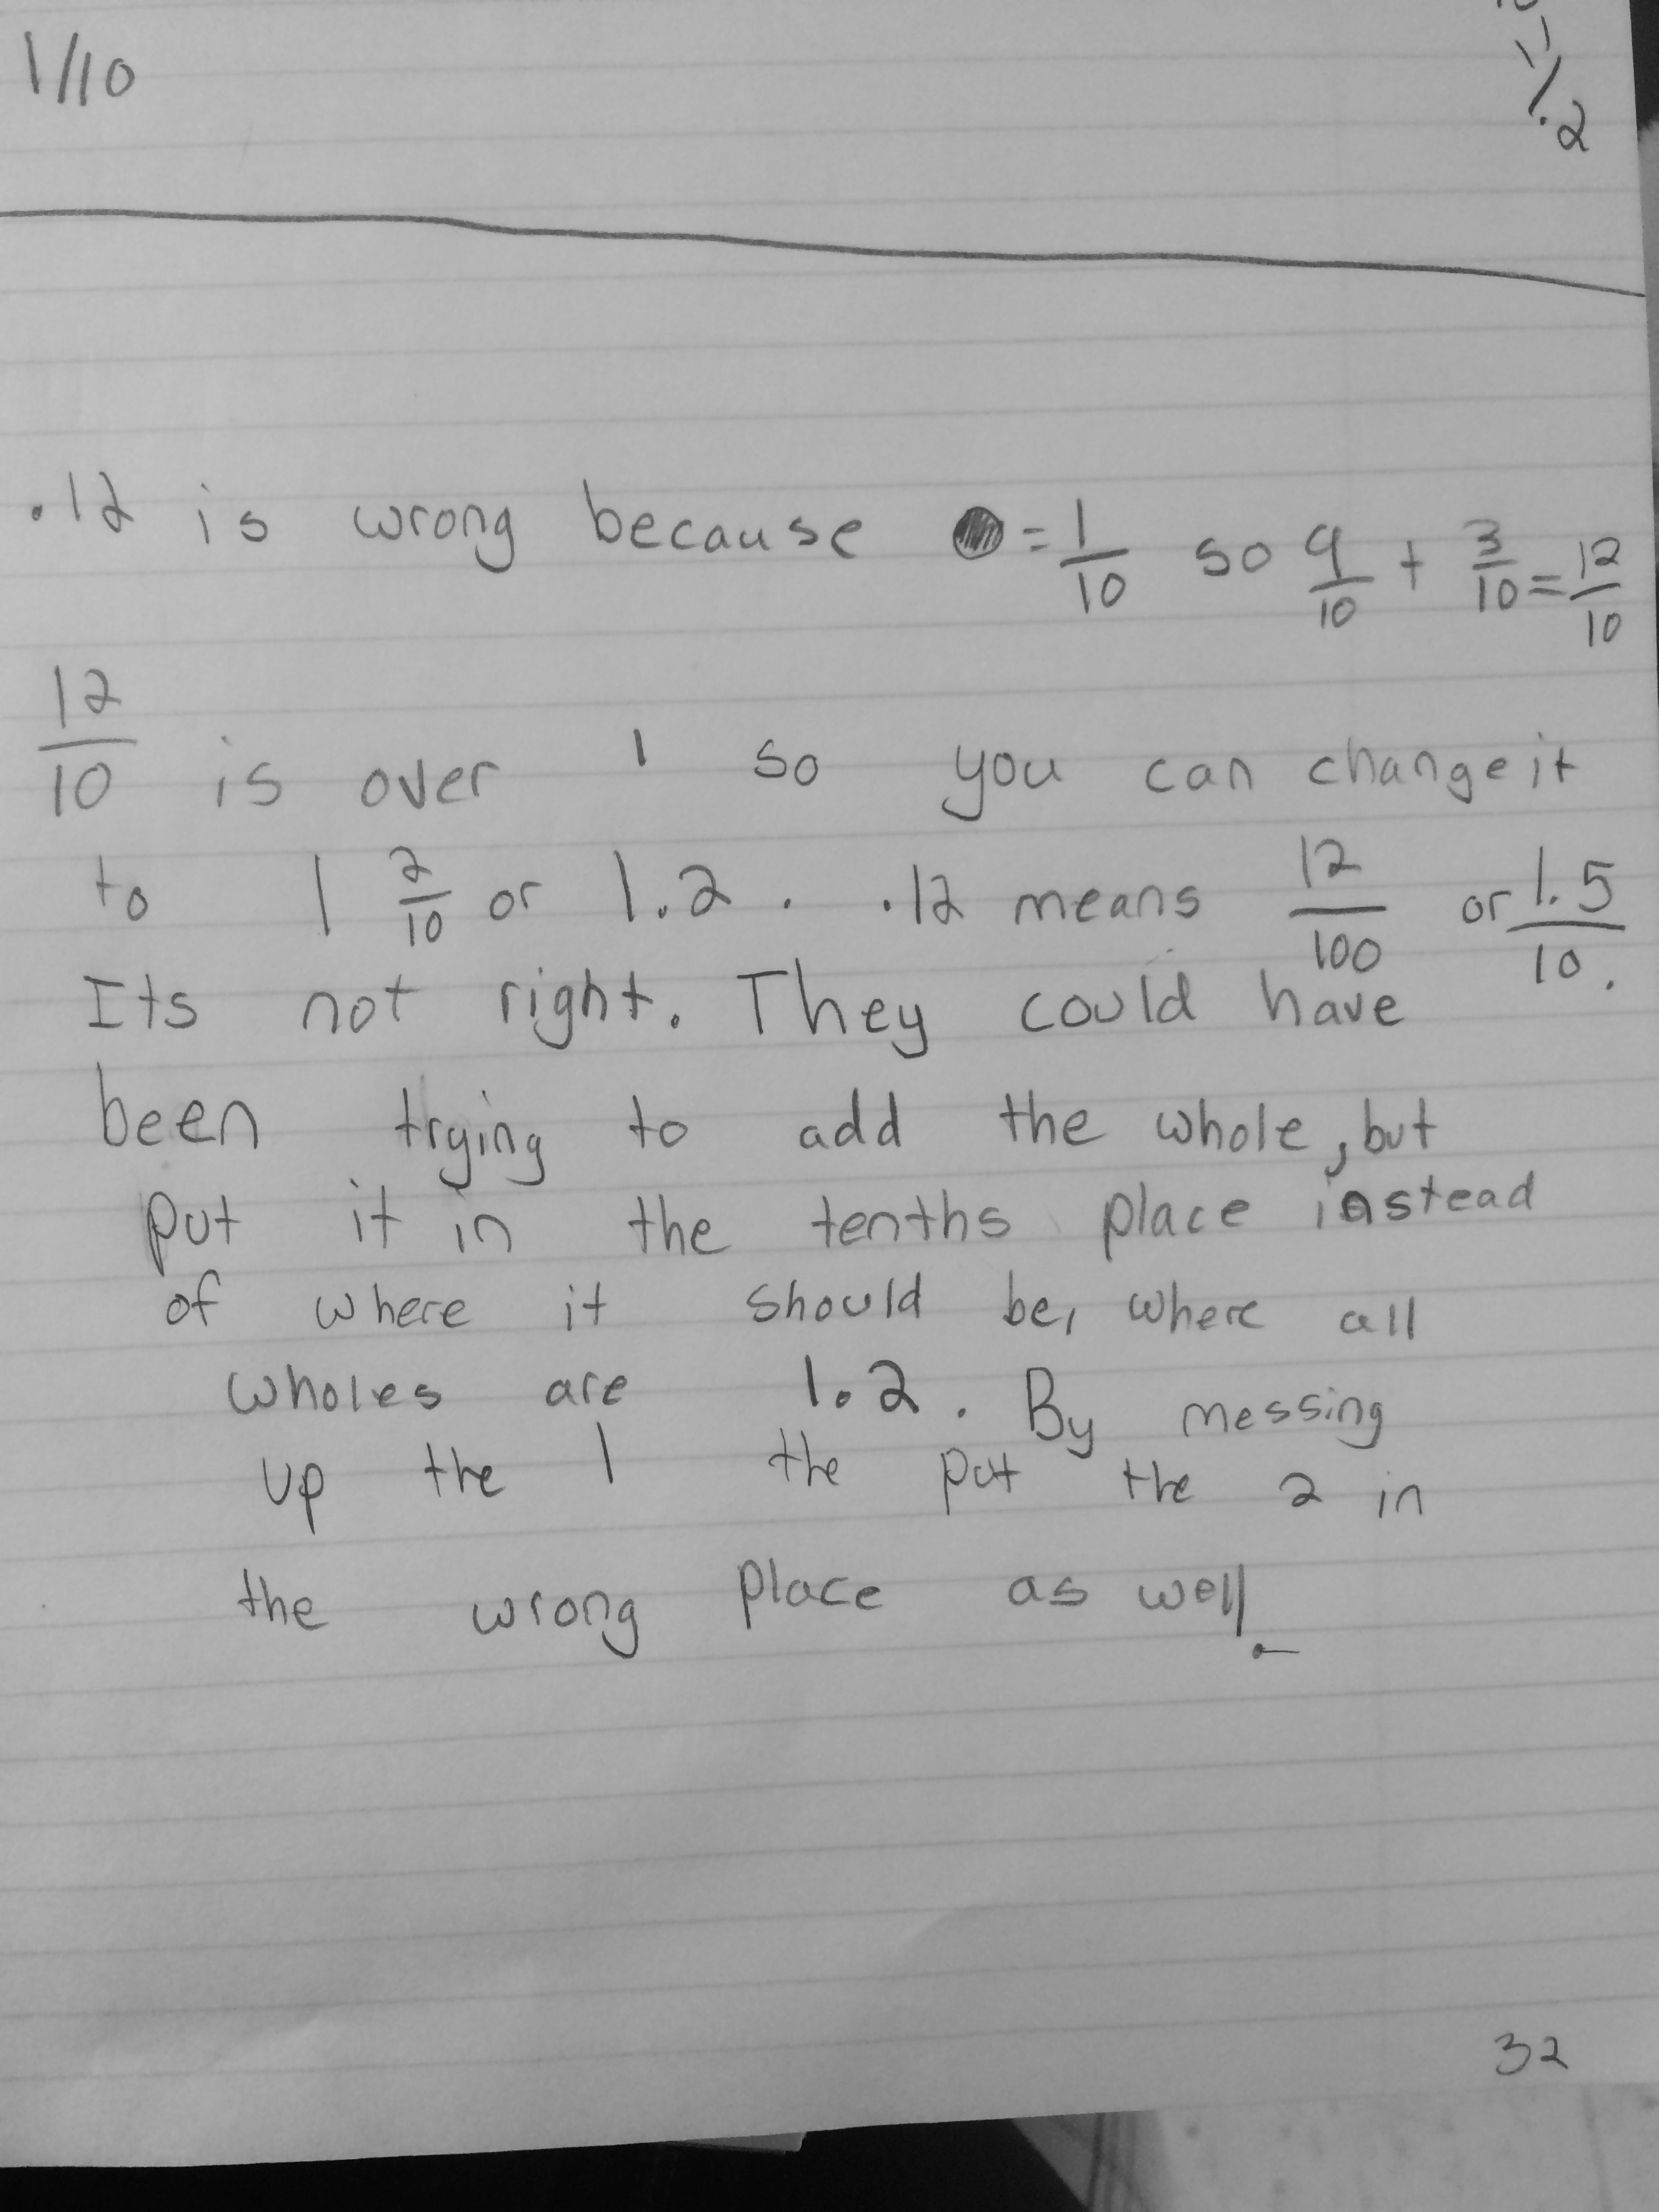 1/10
1/.2
.12 is wrong because = 1/10 so 9/10 + 3/10 = 12/10
12/10 is over 1 so you can change it
to 1 2/10 or 1.2 . .12 means 12/100 or 1.5/10.
Its not right. They could have
been trying to add the whole, but
put it in the tenths place instead
of where it should be, where all
wholes are 1.2. By messing
up the 1 the put the 2 in
the wrong place as well.
32